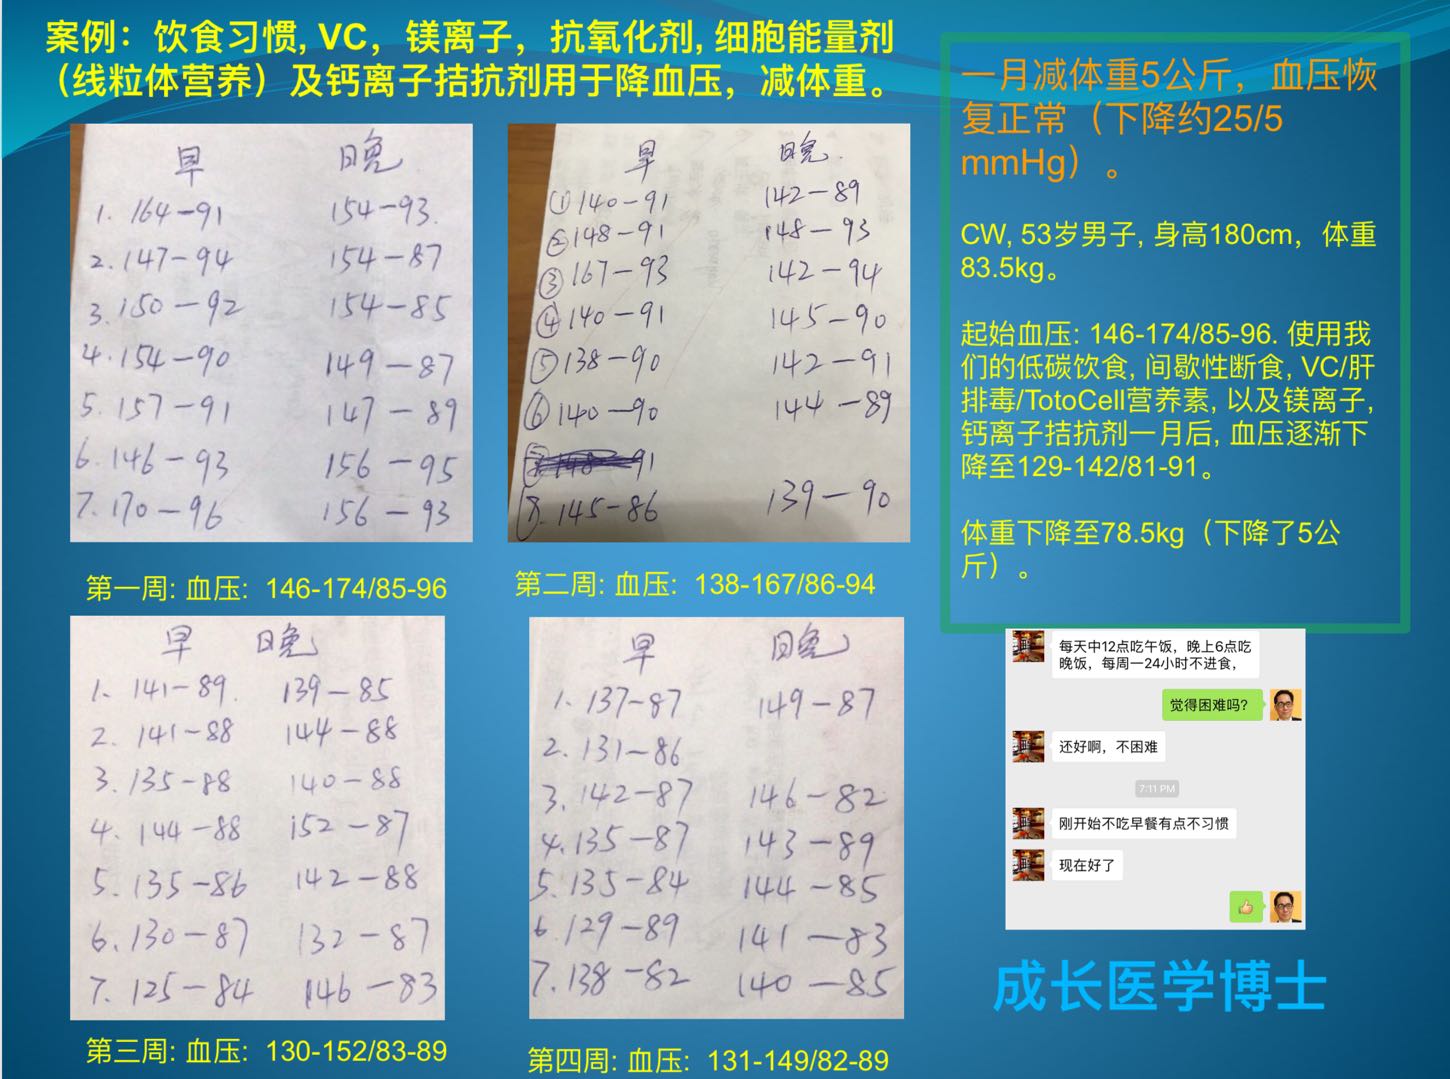 案例：饮食习惯, VC，镁离子，抗氧化剂, 细胞能量剂
（线粒体营养）及钙离子拮抗剂用于降血压，减体重。
早 晚
1. 164-91 154-93.
2. 147-94 154-87
3. 150-92 154-85
4. 154-90 149-87
5. 157-91 147-89
6. 146-93 156-95
7. 170-96 156-93
第一周: 血压: 146-174/85-96
早 晚.
① 140-91 142-89
② 148-91 148-93
③ 167-93 142-94
④ 140-91 145-90
⑤ 138-90 142-91
⑥ 140-90 144-89
91
8. 145-86 139-90
第二周: 血压: 138-167/86-94
早 晚
1. 141-89. 139-85
2. 141-88 144-88
3. 135-88 140-88
4. 144-88 152-87
5. 135-86 142-88
6. 130-87 132-87
7. 125-84 146-83
第三周: 血压: 130-152/83-89
早 晚
1. 137-87 149-87
2. 131-86
3. 142-87 146-82
4. 135-87 143-89
5. 135-84 144-85
6. 129-89 141-83
7. 138-82 140-85
第四周: 血压: 131-149/82-89
一月减体重5公斤，血压恢
复正常（下降约25/5
mmHg）。
CW, 53岁男子, 身高180cm，体重
83.5kg。
起始血压: 146-174/85-96. 使用我
们的低碳饮食, 间歇性断食, VC/肝
排毒/TotoCell营养素, 以及镁离子,
钙离子拮抗剂一月后, 血压逐渐下
降至129-142/81-91。
体重下降至78.5kg（下降了5公
斤）。
每天中12点吃午饭，晚上6点吃
晚饭，每周一24小时不进食，
觉得困难吗？
还好啊，不困难
7:11 PM
刚开始不吃早餐有点不习惯
现在好了
成长医学博士